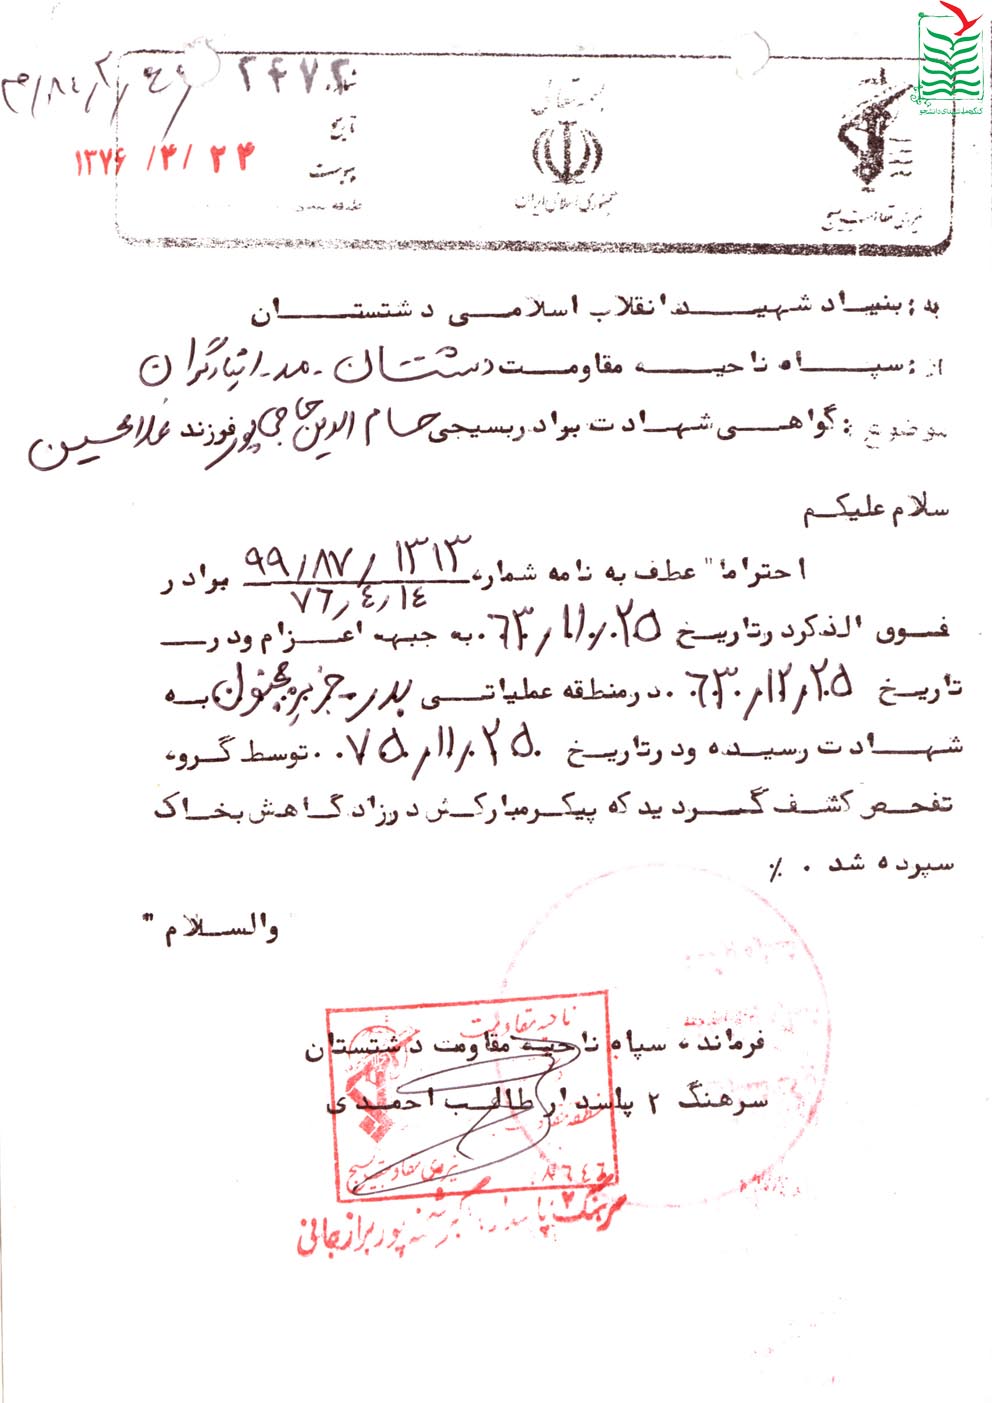 کنگره ملی شهدای دانشجو
بسمه تعالی
جمهوری اسلامی ایران
نیروی مقاومت بسیج
شماره ۲۴۷۲
تاریخ
۱۳۷۶ /۴/ ۲۴
پیوست
به : بنیاد شهید انقلاب اسلامی دشتستان
از : سپاه ناحیه مقاومت دشتستان - مد - ایثارگران
موضوع : گواهی شهادت برادر بسیجی حسام الدین حاجی پور فرزند غلامحسین
سلام علیکم
احتراما" عطف به نامه شماره ۹۹/۸۷/۱۳۱۳ برادر
۷۶/۴/۱۴
فوق الذکر در تاریخ ۶۳/۱۱/۲۵ به جبهه اعزام و در
تاریخ ۶۳/۱۲/۲۵ در منطقه عملیاتی بدر - جزیره مجنون به
شهادت رسیده و در تاریخ ۷۵/۱۱/۲۵ توسط گروه
تفحص کشف گردید که پیکر مبارکش در زادگاهش بخاک
سپرده شد . ٪
والسلام "
ناحیه مقاومت
فرمانده سپاه ناحیه مقاومت دشتستان
سرهنگ ۲ پاسدار طالب احمدی
منطقه مقاومت
نیروی مقاومت بسیج
سرهنگ ۲ پاسدار پور برازجانی